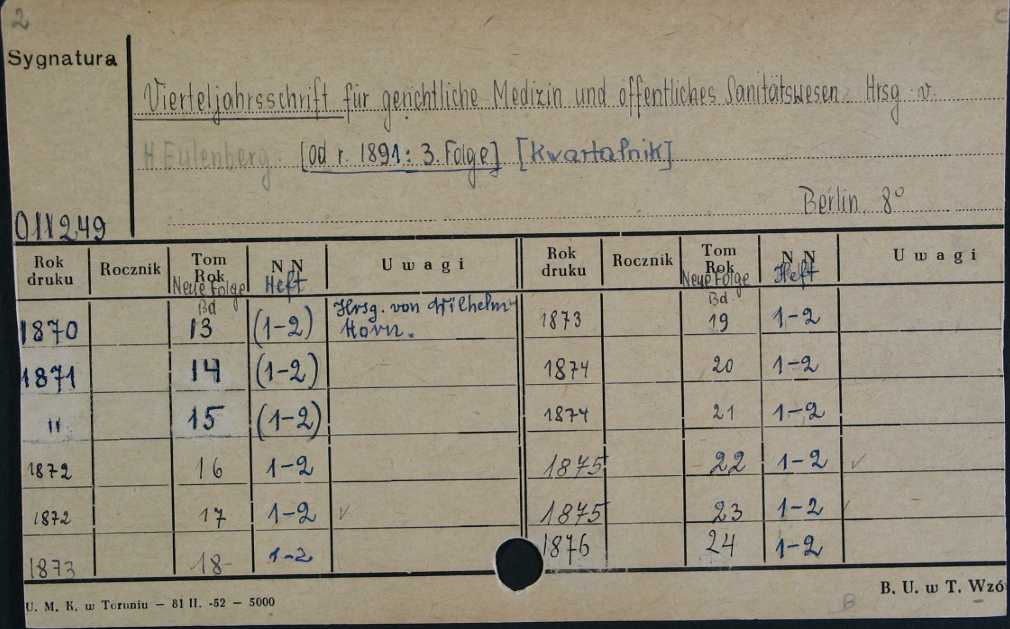 2
C
Sygnatura
Vierteljahrsschrift für gerichtliche Medizin und öffentliches Sanitätswesen. Hrsg. v.
H. Eulenberg. [od r. 1891: 3. Folge] [Kwartalnik]
Berlin. 8°
011249
Rok druku Rocznik Tom Rok Neue Folge Bd N N Heft Uwagi Rok druku Rocznik Tom Rok Neue Folge Bd N N Heft Uwagi
1870 13 (1-2) Hrsg. von Wilhelm Horn. 1873 19 1-2
1871 14 (1-2) 1874 20 1-2
" 15 (1-2) 1874 21 1-2
1872 16 1-2 1875 22 1-2 ✓
1872 17 1-2 ✓ 1875 23 1-2
1873 18 1-2 1876 24 1-2
U. M. K. w Toruniu — 81 II. -52 — 5000
B
B. U. w T. Wzó